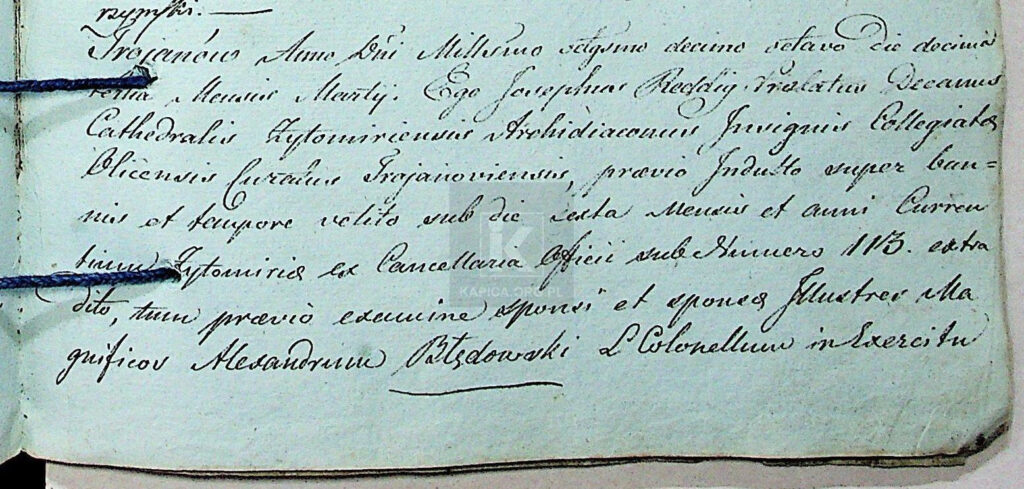 rzymski.
Trojanów Anno Dni Millesimo octgsmo decimo octavo die decima
tertia Mensis Martij. Ego Josephus Reddig Prælatus Decanus
Cathedralis Zytomiriensis Archidiaconus Insignis Collegiatæ
Olicensis Curatus Trojanoviensis, prævio Indulto super ban=
nis et tempore vetito sub die sexta Mensis et anni Curren
tium Zytomiriæ ex Cancellaria Officii sub Numero 113. extra
dito, tum prævio examine sponsi et sponsæ Illustres Ma
gnificos Alexandrum Błędowski L Colonellum in Exercitu
KAPICA.ORG.PL